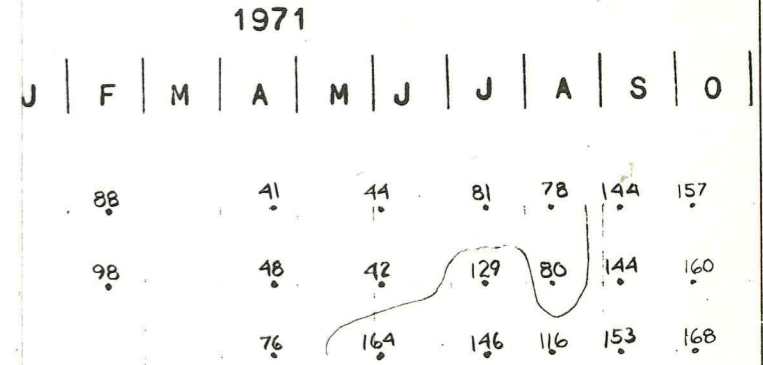 1971
J F M A M J J A S O
88 41 44 81 78 144 157
98 48 42 129 80 144 160
76 164 146 116 153 168